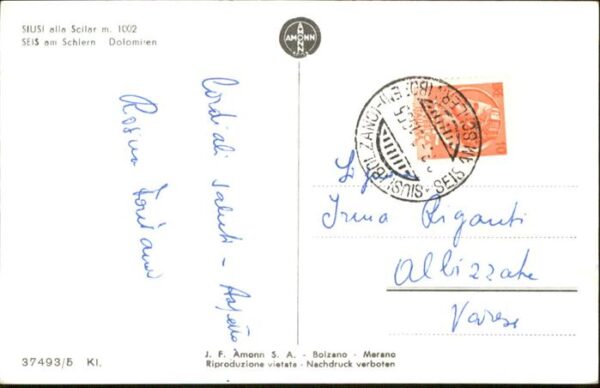 SIUSI alla Sciliar m. 1002
SEIS am Schlern Dolomiten
AMONN
AMONN
Cordiali saluti -
Rosina
SIUSI (BOLZANO)
SEIS AM SCHLER (BOZEN)
Irma Riganti
Albizzate
Varese
37493/5 Kl.
J. F. Amonn S. A. - Bolzano - Merano
Riproduzione vietata - Nachdruck verboten